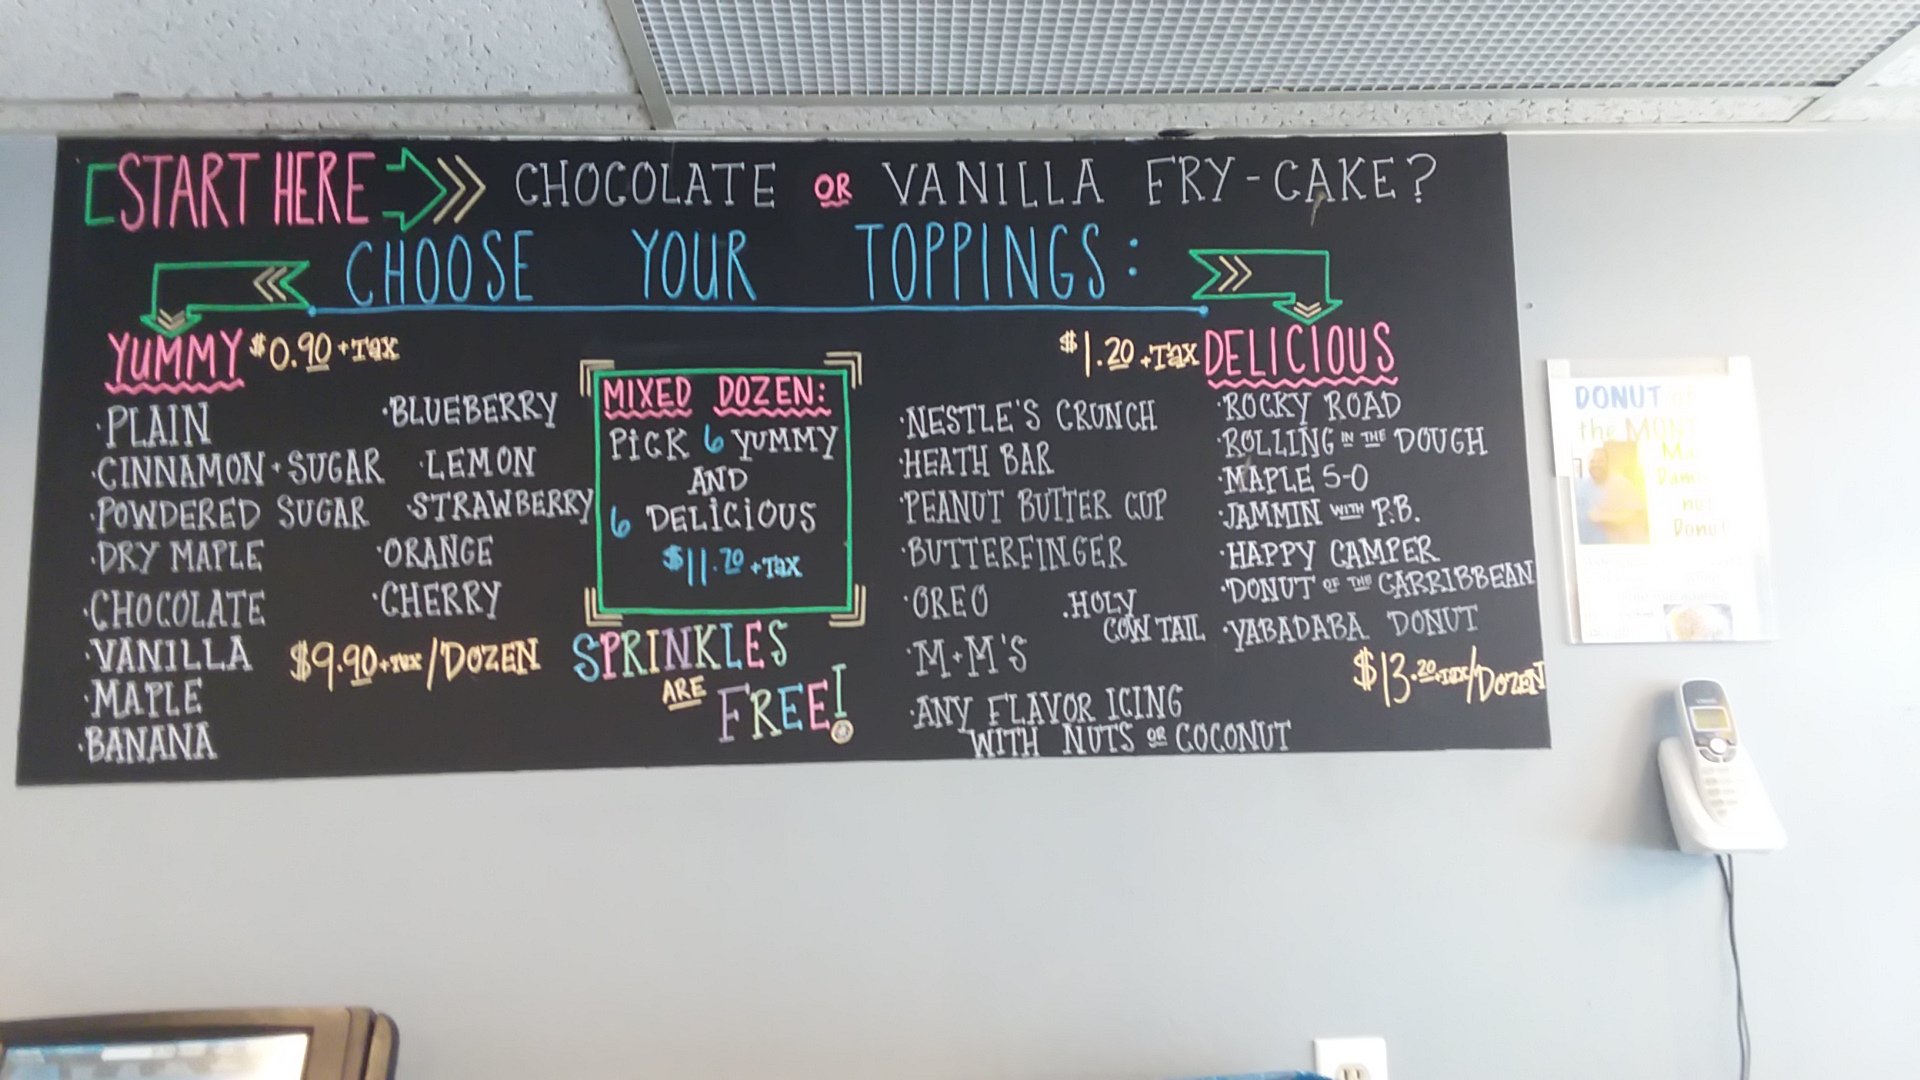 START HERE CHOCOLATE OR VANILLA FRY-CAKE?
CHOOSE YOUR TOPPINGS:
YUMMY $0.90 +TAX
·PLAIN
·CINNAMON+SUGAR
·POWDERED SUGAR
·DRY MAPLE
·CHOCOLATE
·VANILLA
·MAPLE
·BANANA
·BLUEBERRY
·LEMON
·STRAWBERRY
·ORANGE
·CHERRY
$9.90+TAX/DOZEN
MIXED DOZEN:
PICK 6 YUMMY
AND
6 DELICIOUS
$11.70 +TAX
SPRINKLES
ARE
FREE!
$1.20 +TAX DELICIOUS
·NESTLE'S CRUNCH
·HEATH BAR
·PEANUT BUTTER CUP
·BUTTERFINGER
·OREO
·M+M'S
·ANY FLAVOR ICING
WITH NUTS OR COCONUT
·HOLY
COW TAIL
·ROCKY ROAD
·ROLLING IN THE DOUGH
·MAPLE 5-0
·JAMMIN WITH P.B.
·HAPPY CAMPER
·DONUT OF THE CARRIBBEAN
·YABADABA DONUT
$13.20+TAX/DOZEN
DONUT
the
Donut